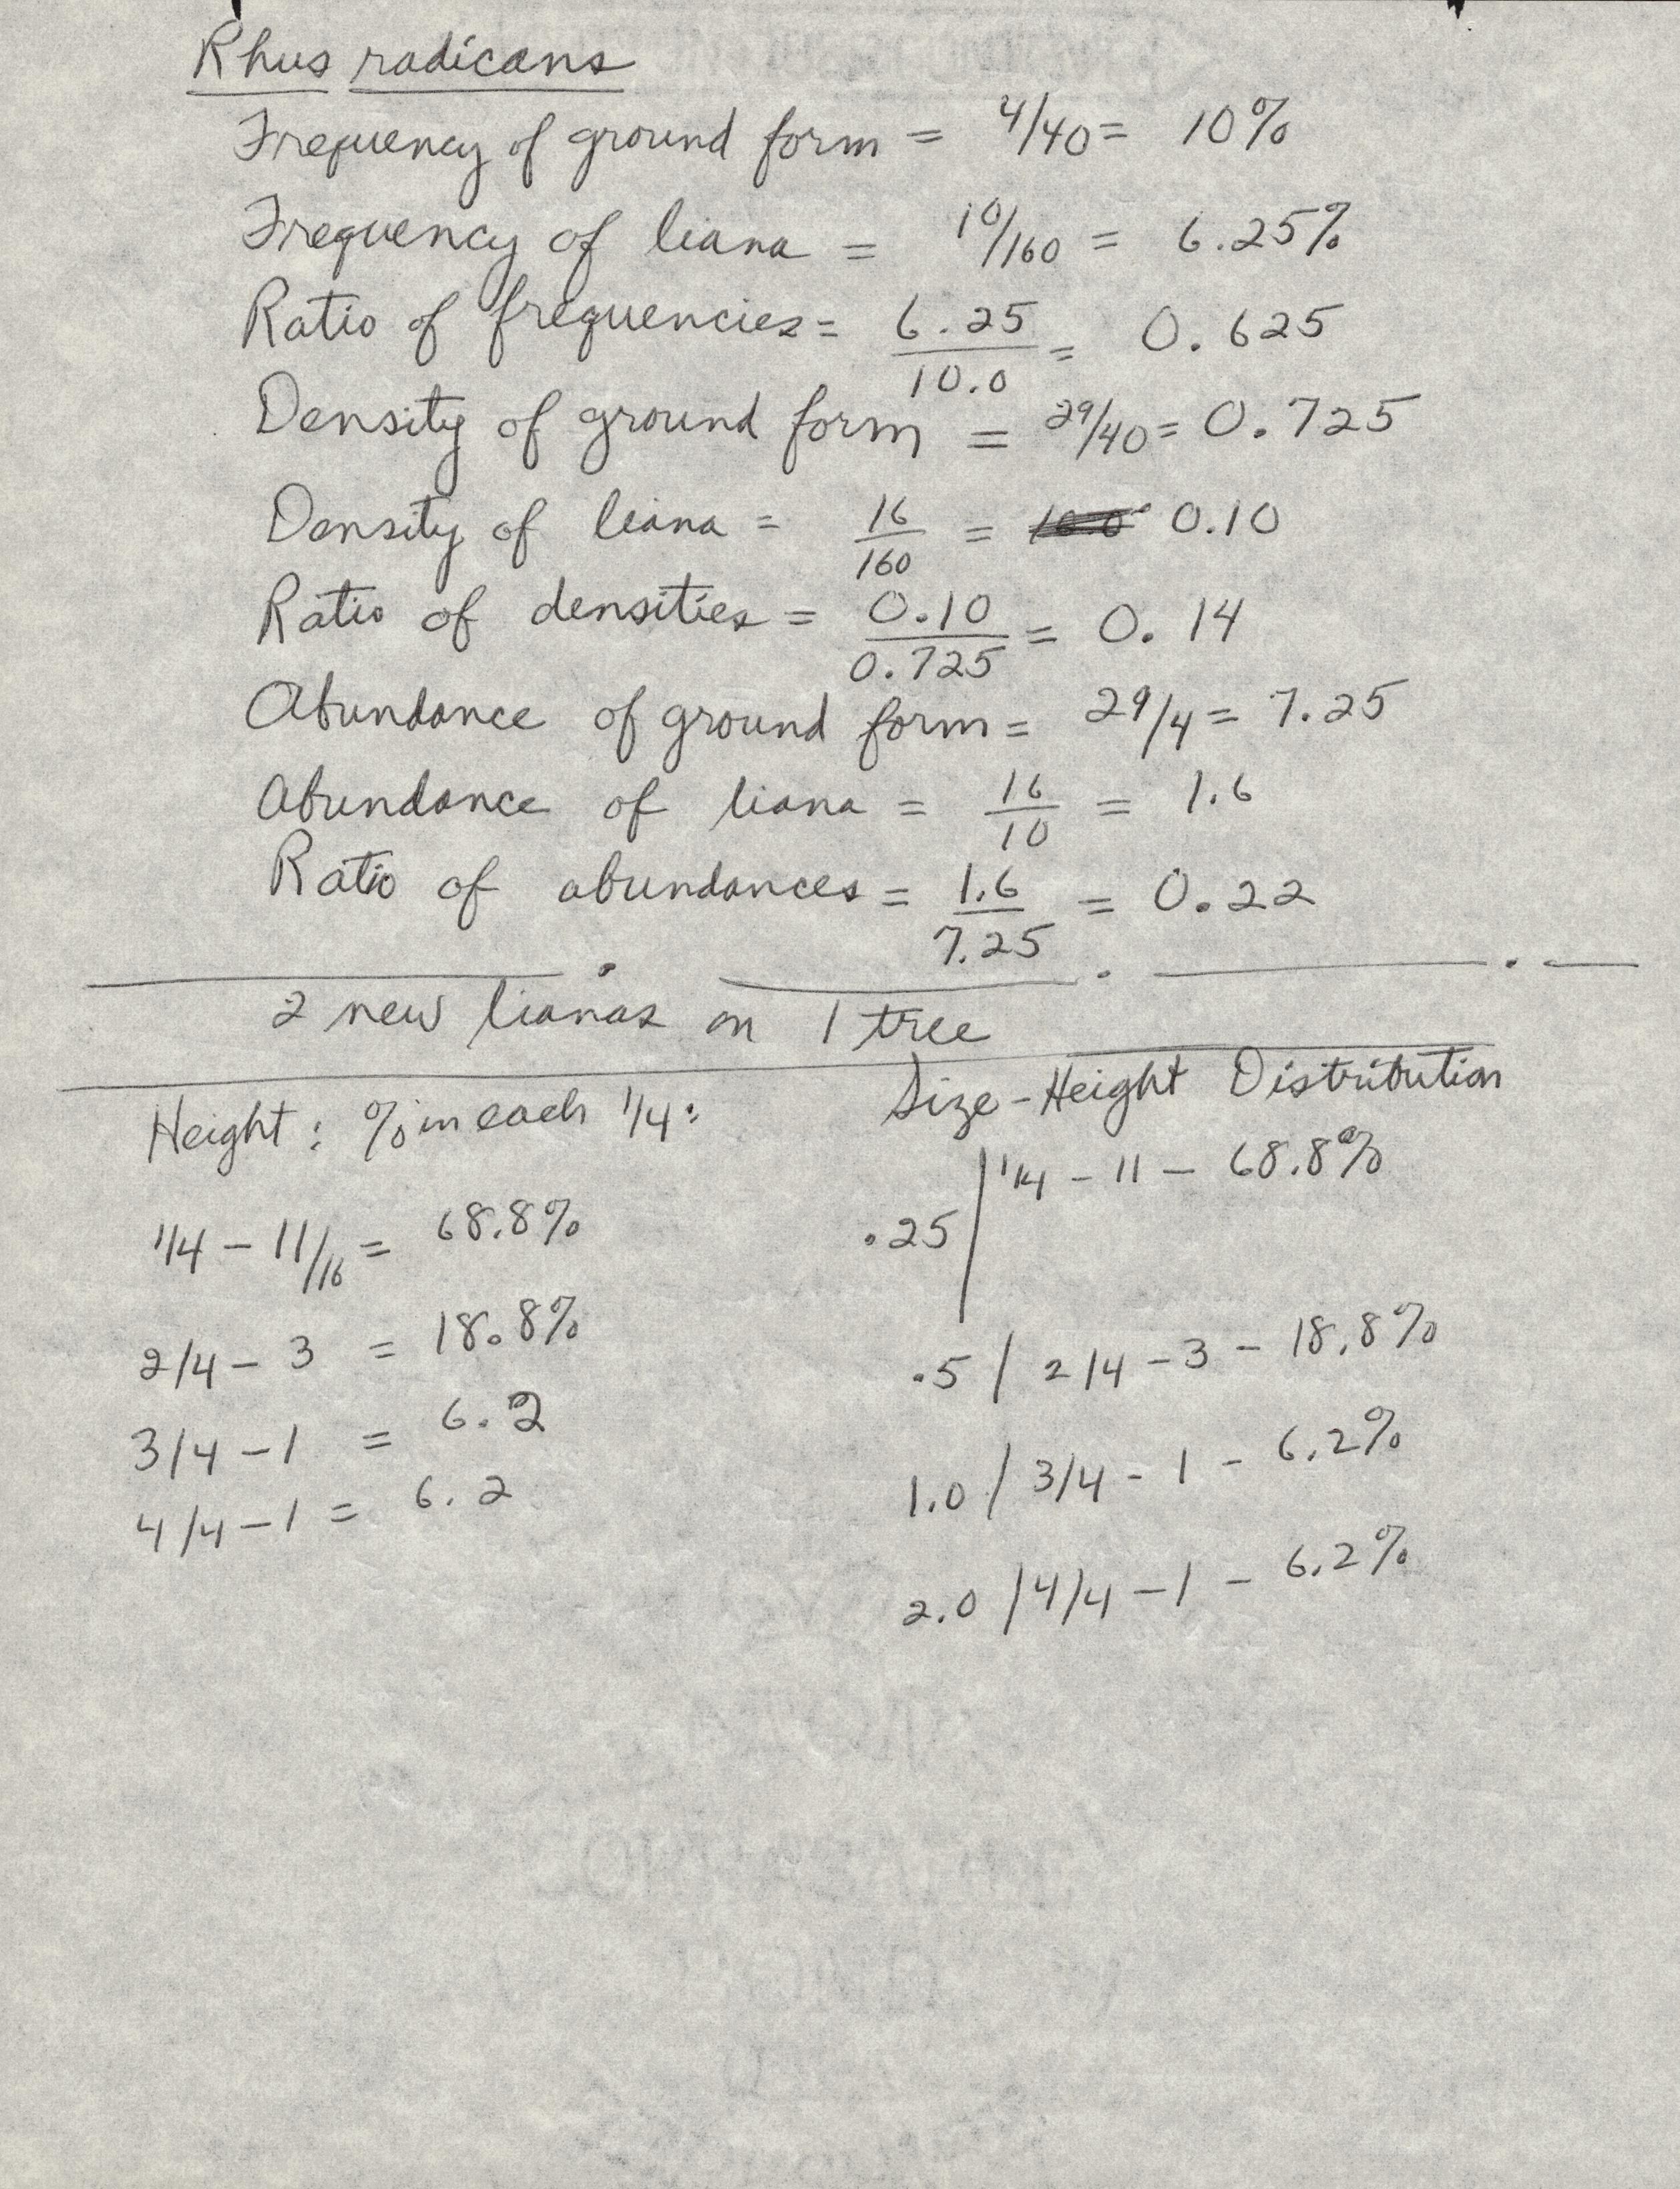 Rhus radicans
Frequency of ground form = 4/40 = 10%
Frequency of liana = 10/160 = 6.25%
Ratio of frequencies = 6.25/10.0 = 0.625
Density of ground form = 29/40 = 0.725
Density of liana = 16/160 = 0.10
Ratio of densities = 0.10/0.725 = 0.14
Abundance of ground form = 29/4 = 7.25
Abundance of liana = 16/10 = 1.6
Ratio of abundances = 1.6/7.25 = 0.22
2 new lianas on 1 tree
Height: % in each 1/4:
1/4 - 11/16 = 68.8%
2/4 - 3 = 18.8%
3/4 - 1 = 6.2
4/4 - 1 = 6.2
Size-Height Distribution
.25 | 1/4 - 11 - 68.8%
.5 | 2/4 - 3 - 18.8%
1.0 | 3/4 - 1 - 6.2%
2.0 | 4/4 - 1 - 6.2%